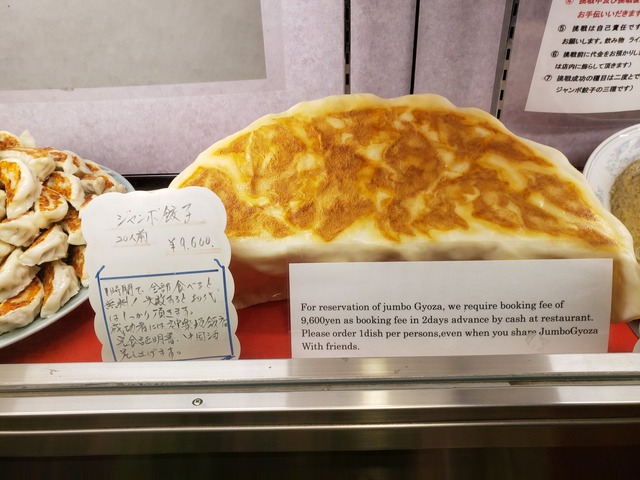 ④ 挑戦中及び挑戦後
お手伝いだきます
⑤ 挑戦は自己責任です
お願いします。飲み物 ライ
⑥ 挑戦前に代金をお預かりし
は店内に飾らして頂きます）
⑦ 挑戦成功の種目は二度とで
ジャンボ餃子の三種です）
ジャンボ餃子
20人前
￥9,600.
1時間で、全部食べると
無料！失敗するとお代
はしっかり頂きます。
成功者には神楽坂飯店
完食証明書、
差し上げます。
For reservation of jumbo Gyoza, we require booking fee of
9,600yen as booking fee in 2days advance by cash at restaurant.
Please order 1dish per persons,even when you share JumboGyoza
With friends.